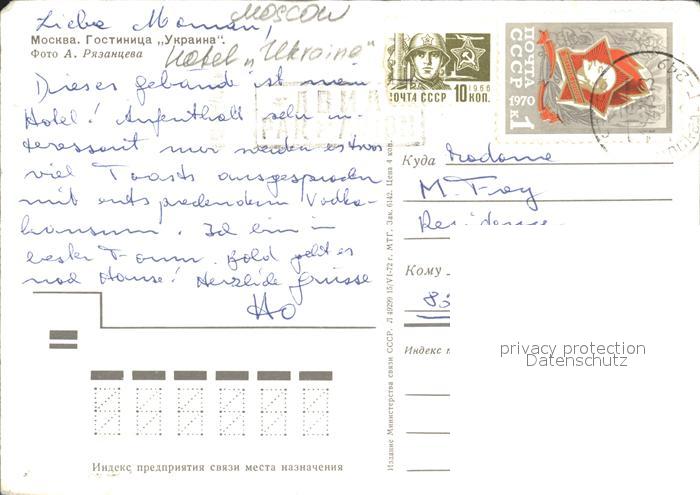 Moscow
Liebe Maman,
Москва. Гостиница „Украина“
Фото А. Рязанцева
Hotel „Ukraina“
Dieses gebäude ist mein
Hotel! Aufenthalt sehr in-
teressant nur werden etwas
viel Toasts ausgesprochen
mit entsprechendem Vodka-
konsum. Ich bin in
bester Form. Bald geht es
nach Hause! Herzliche grüsse
ПОЧТА СССР
1966
10 КОП.
ПОЧТА
СССР
1970
к 1
219
АВИА
Куда Madame
M. Frey
Кому
Индекс п
Индекс предприятия связи места назначения
Издание Министерства связи СССР. Л 49299 15/VI-72 г. МТГ. Зак. 6142. Цена 4 коп.
privacy protection
Datenschutz